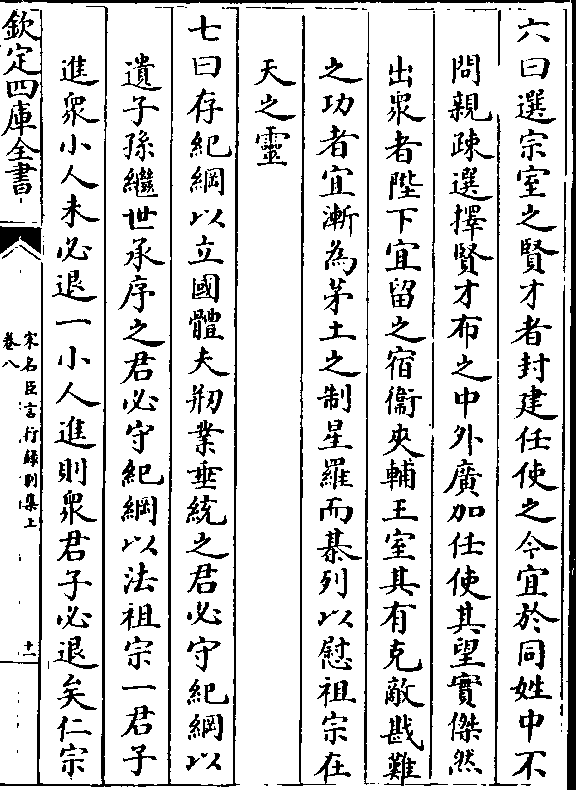 六曰選宗室之賢才者封建任使之今宜於同姓中不
問親疎選擇賢才布之中外廣加任使其望實傑然
出衆者陛下宜留之宿衞夾輔王室其有克敵戡難
之功者宜漸為茅土之制星羅而棊列以慰祖宗在
天之靈
七曰存紀綱以立國體夫剏業垂統之君必守紀綱以
遺子孫繼世承序之君必守紀綱以法祖宗一君子
進衆小人未必退一小人進則衆君子必退矣仁宗
欽定四庫全書
宋名臣言行録别集上
卷八
十一